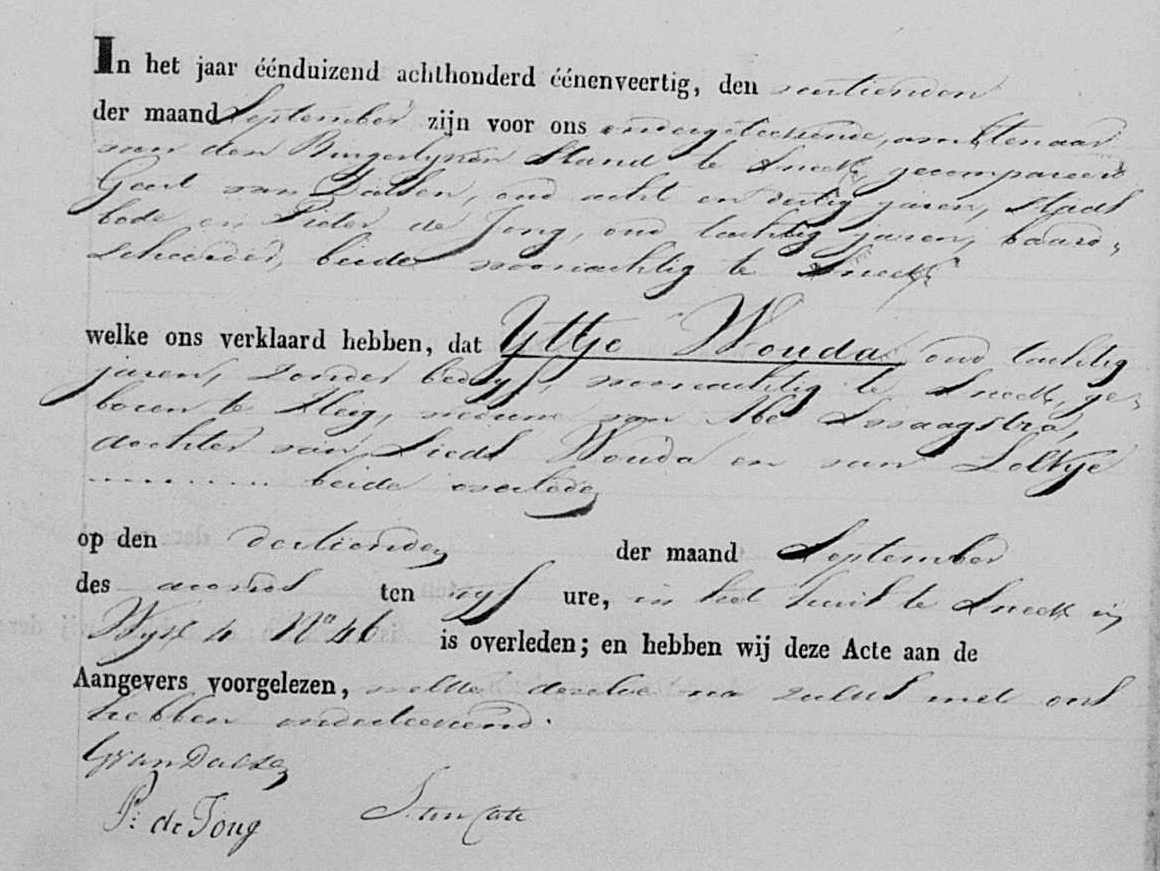 In het jaar éénduizend achthonderd éénenveertig, den veertienden
der maand September zijn voor ons ondergeteekende, ambtenaar
van den Burgerlyken Stand te Sneek, gecompareerd
Geert van Dalsen, oud acht en dertig jaren, stads
bode en Pieter de Jong, oud tachtig jaren, baard-
scheerder, beide woonachtig te Sneek
welke ons verklaard hebben, dat Yttje Wouda oud tachtig
jaren, zonder bedryf, woonachtig te Sneek, ge-
boren te Heeg, weduwe van Abe Draagstra,
dochter van Sierk Wouda en van Loltje
............ beide overleden
op den dertienden der maand September
des avonds ten vyf ure, in het huis te Sneek in
Wyk 4 No 46 is overleden; en hebben wij deze Acte aan de
Aangevers voorgelezen, welke dezelve na zulks met ons
hebben onderteekend.
G van Dalsen
P: de Jong S. ten Cate